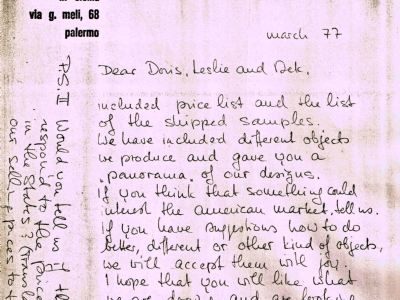 via g. meli, 68
palermo
march 77
Dear Doris, Leslie and Dek,
included price list and the list
of the shipped samples.
We have included different objects
we produce and gave you a
panorama of our designs.
If you think that something could
interest the american market, tell us.
If you have suggestions how to do
better, different or other kind of objects,
we will accept them with joy.
I hope that you will like what
we are doing and are looking
P.S. II Would you tell us if th
respond to the price
in the state? (Trans
our sell prices to t